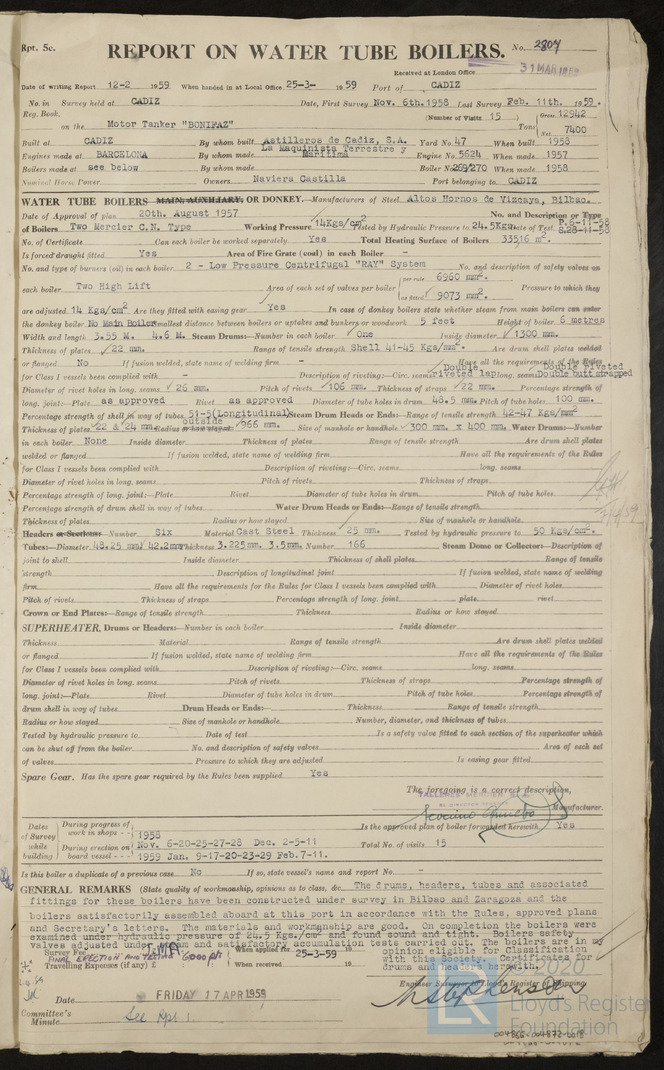 Rpt. 5c.
REPORT ON WATER TUBE BOILERS. No. 2807
Received at London Office 31 MAR 1959
Date of writing Report 12-2 1959 When handed in at Local Office 25-3- 1959 Port of CADIZ
No. in Survey held at CADIZ Date, First Survey Nov. 6th.1958 Last Survey Feb. 11th. 1959.
Reg. Book. (Number of Visits 15 )
on the Motor Tanker "BONIFAZ" Tons Gross 12942 Net 7400
Built at CADIZ By whom built Astilleros de Cadiz, S.A. Yard No. 47 When built 1958
Engines made at BARCELONA By whom made La Maquinista Terrestre y Maritima Engine No. 5624 When made 1957
Boilers made at see below By whom made Boiler No. 269/270 When made 1958
Nominal Horse Power Owners Naviera Castilla Port belonging to CADIZ
WATER TUBE BOILERS MAIN, AUXILIARY, OR DONKEY.—Manufacturers of Steel Altos Hornos de Vizcaya, Bilbao.
Date of Approval of plan 20th. August 1957 No. and Description or Type
of Boilers Two Mercier C.N. Type Working Pressure 14Kgs/cm² Tested by Hydraulic Pressure to 24.5Kgs. Date of Test P.6-11-58 S.28-11-58
No. of Certificate Can each boiler be worked separately Yes Total Heating Surface of Boilers 33516 m².
Is forced draught fitted Yes Area of Fire Grate (coal) in each Boiler -
No. and type of burners (oil) in each boiler 2 - Low Pressure Centrifugal "RAY" System No. and description of safety valves on
each boiler Two High Lift Area of each set of valves per boiler per rule 6960 mm². as fitted 9073 mm². Pressure to which they
are adjusted 14 Kgs/cm² Are they fitted with easing gear Yes In case of donkey boilers state whether steam from main boilers can enter
the donkey boiler No Main Boiler Smallest distance between boilers or uptakes and bunkers or woodwork 5 feet Height of boiler 6 metres
Width and length 3.55 M. 4.6 M. Steam Drums:—Number in each boiler One Inside diameter 1300 mm.
Thickness of plates 22 mm. Range of tensile strength Shell 41-45 Kgs/mm². Are drum shell plates welded
or flanged No If fusion welded, state name of welding firm - Have all the requirements of the Rules
for Class I vessels been complied with - Description of riveting:—Circ. seams Double riveted lap long. seams Double riveted Double butt strapped
Diameter of rivet holes in long. seams 26 mm. Pitch of rivets 106 mm. Thickness of straps 22 mm. Percentage strength of
long. joint:—Plate as approved Rivet as approved Diameter of tube holes in drum 48.5 mm. Pitch of tube holes 100 mm.
Percentage strength of shell in way of tubes 51-5(Longitudinal) Steam Drum Heads or Ends:—Range of tensile strength 42-47 Kgs/mm²
Thickness of plates 22 & 24 mm. Radius or how stayed outside 966 mm. Size of manhole or handhole 300 mm. x 400 mm. Water Drums:—Number
in each boiler None Inside diameter Thickness of plates Range of tensile strength Are drum shell plates
welded or flanged If fusion welded, state name of welding firm Have all the requirements of the Rules
for Class I vessels been complied with Description of riveting:—Circ. seams long. seams
Diameter of rivet holes in long. seams Pitch of rivets Thickness of straps
Percentage strength of long. joint:—Plate Rivet Diameter of tube holes in drum Pitch of tube holes
Percentage strength of drum shell in way of tubes Water Drum Heads or Ends:—Range of tensile strength
Thickness of plates Radius or how stayed Size of manhole or handhole
Headers or Sections:—Number Six Material Cast Steel Thickness 25 mm. Tested by hydraulic pressure to 50 Kgs/cm².
Tubes:—Diameter 48.25 mm/ 42.2mm Thickness 3.225mm. 3.5mm. Number 166 Steam Dome or Collector:—Description of
joint to shell Inside diameter Thickness of shell plates Range of tensile
strength Description of longitudinal joint If fusion welded, state name of welding
firm Have all the requirements for the Rules for Class I vessels been complied with Diameter of rivet holes
Pitch of rivets Thickness of straps Percentage strength of long. joint plate rivet
Crown or End Plates:—Range of tensile strength Thickness Radius or how stayed
SUPERHEATER, Drums or Headers:—Number in each boiler Inside diameter
Thickness Material Range of tensile strength Are drum shell plates welded
or flanged If fusion welded, state name of welding firm Have all the requirements of the Rules
for Class I vessels been complied with Description of riveting:—Circ. seams long. seams
Diameter of rivet holes in long. seams Pitch of rivets Thickness of straps Percentage strength of
long. joint:—Plate Rivet Diameter of tube holes in drum Pitch of tube holes Percentage strength of
drum shell in way of tubes Drum Heads or Ends:— Thickness Range of tensile strength
Radius or how stayed Size of manhole or handhole Number, diameter, and thickness of tubes
Tested by hydraulic pressure to Date of test Is a safety valve fitted to each section of the superheater which
can be shut off from the boiler No. and description of safety valves Area of each set
of valves Pressure to which they are adjusted Is easing gear fitted
Spare Gear. Has the spare gear required by the Rules been supplied Yes
The foregoing is a correct description,
Manufacturer.
Dates of Survey while building During progress of work in shops - - 1958 Is the approved plan of boiler forwarded herewith Yes
During erection on board vessel - - - Nov. 6-20-25-27-28 Dec. 2-5-11 Total No. of visits 15
1959 Jan. 9-17-20-23-29 Feb.7-11.
Is this boiler a duplicate of a previous case No If so, state vessel's name and report No. -
GENERAL REMARKS (State quality of workmanship, opinions as to class, &c. The drums, headers, tubes and associated
fittings for these boilers have been constructed under survey in Bilbao and Zaragoza and the
boilers satisfactorily assembled aboard at this port in accordance with the Rules, approved plans
and Secretary's letters. The materials and workmanship are good. On completion the boilers were
examined under hydraulic pressure of 24.5 Kgs./cm² and found sound and tight. Boilers safety
valves adjusted under steam and satisfactory accumulation tests carried out. The boilers are in my
opinion eligible for Classification
with this Society. Certificates for
drums and headers herewith.
Survey Fee When applied for 25-3-59 19
FINAL ERECTION AND TESTING 6000 pts
Travelling Expenses (if any) £ When received 19
Engineer Surveyor to Lloyd's Register of Shipping
Date FRIDAY 17 APR 1959
Committee's Minute See Rpt 1.
© 2020
Lloyd's Register
Foundation
004866-004872-0018